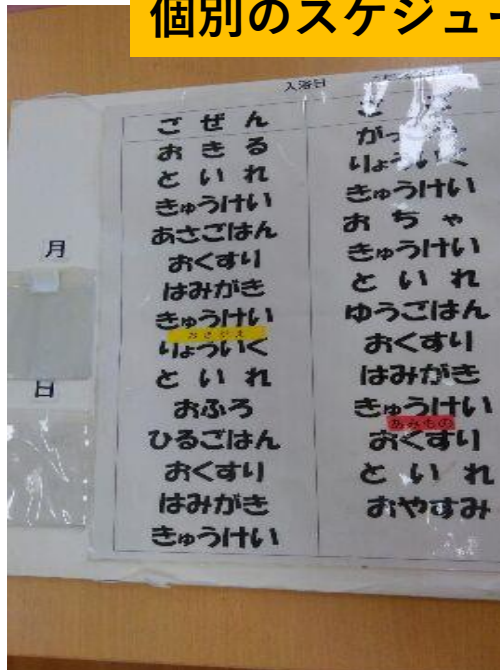 個別のスケジュー
入浴日
ごぜん
おきる
といれ
きゅうけい
あさごはん
おくすり
はみがき
きゅうけい
おきがえ
りょういく
といれ
おふろ
ひるごはん
おくすり
はみがき
きゅうけい
きゅうけい
おちゃ
きゅうけい
といれ
ゆうごはん
おくすり
はみがき
きゅうけい
あみもの
おくすり
といれ
おやすみ
月
日